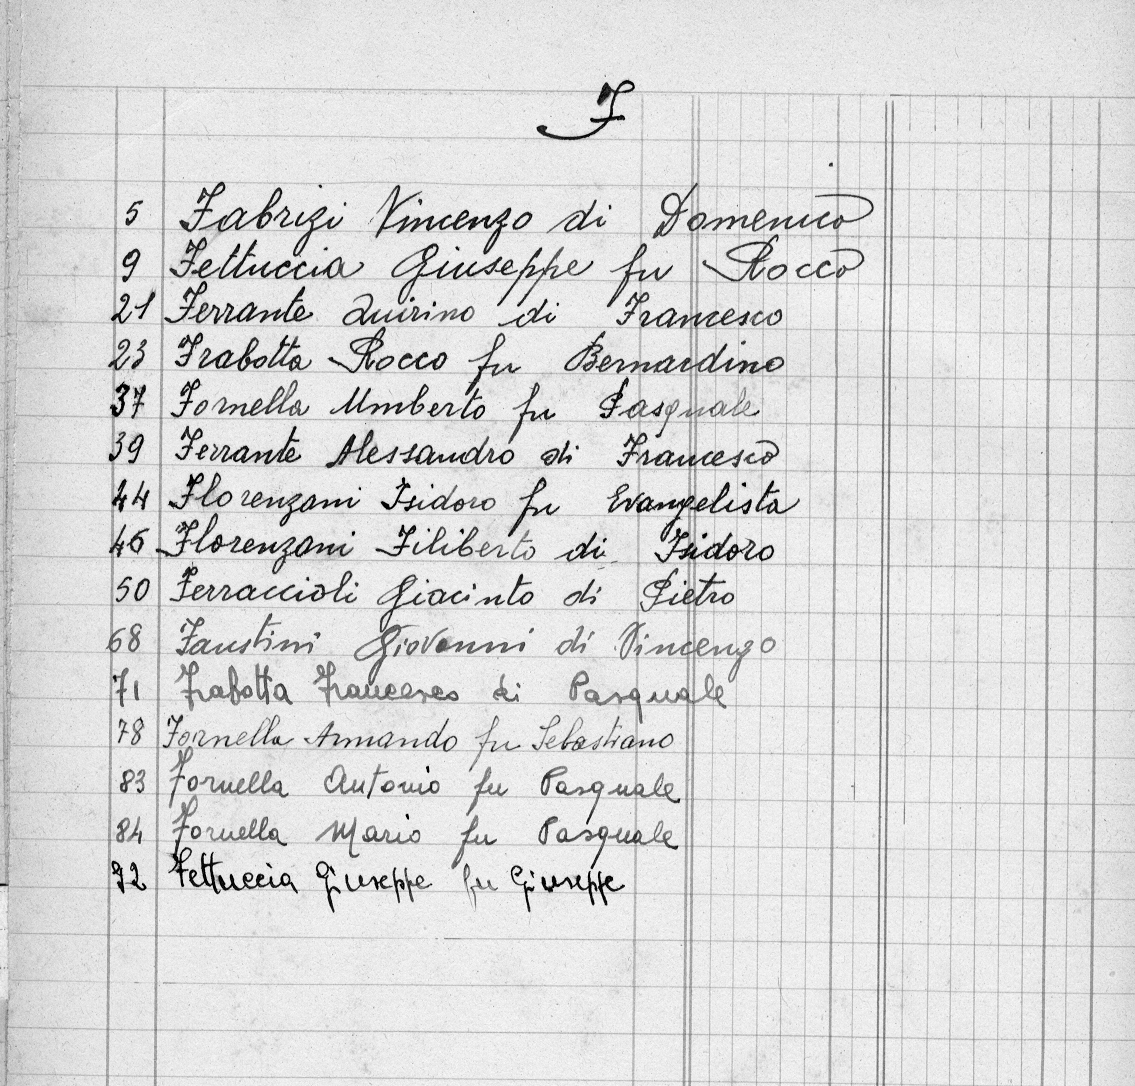 F
5 Fabrizi Vincenzo di Domenico
9 Fettuccia Giuseppe fu Rocco
21 Ferrante Quirino di Francesco
23 Frabotta Rocco fu Bernardino
37 Fornella Umberto fu Pasquale
39 Ferrante Alessandro di Francesco
44 Florenzani Isidoro fu Evangelista
46 Florenzani Filiberto di Isidoro
50 Ferraccioli Giacinto di Pietro
68 Faustini Giovanni di Vincenzo
71 Frabotta Francesco di Pasquale
78 Fornella Armando fu Sebastiano
83 Fornella Antonio fu Pasquale
84 Fornella Mario fu Pasquale
Fettuccia Giuseppe fu Giuseppe